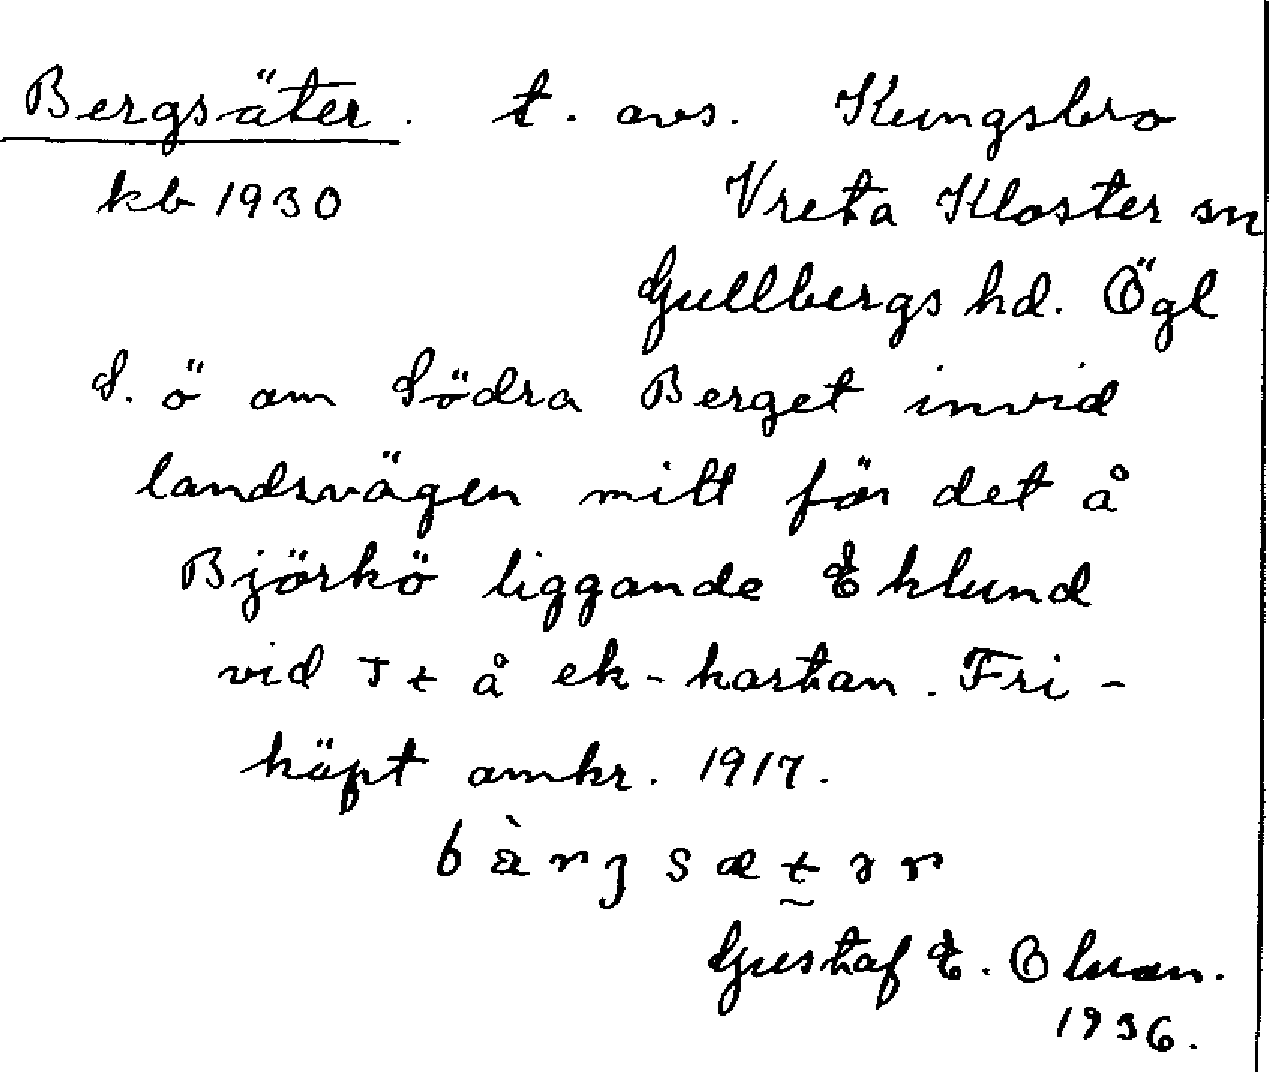 Bergsäter. t. avs. Kungsbro
kb 1930 Vreta Kloster sn
Gullbergs hd. Ögl
S. ö om Södra Berget invid
landsvägen mitt för det å
Björkö liggande Eklund
vid Tt å ek-kartan. Fri-
köpt omkr. 1917.
Gustaf E.
1936.